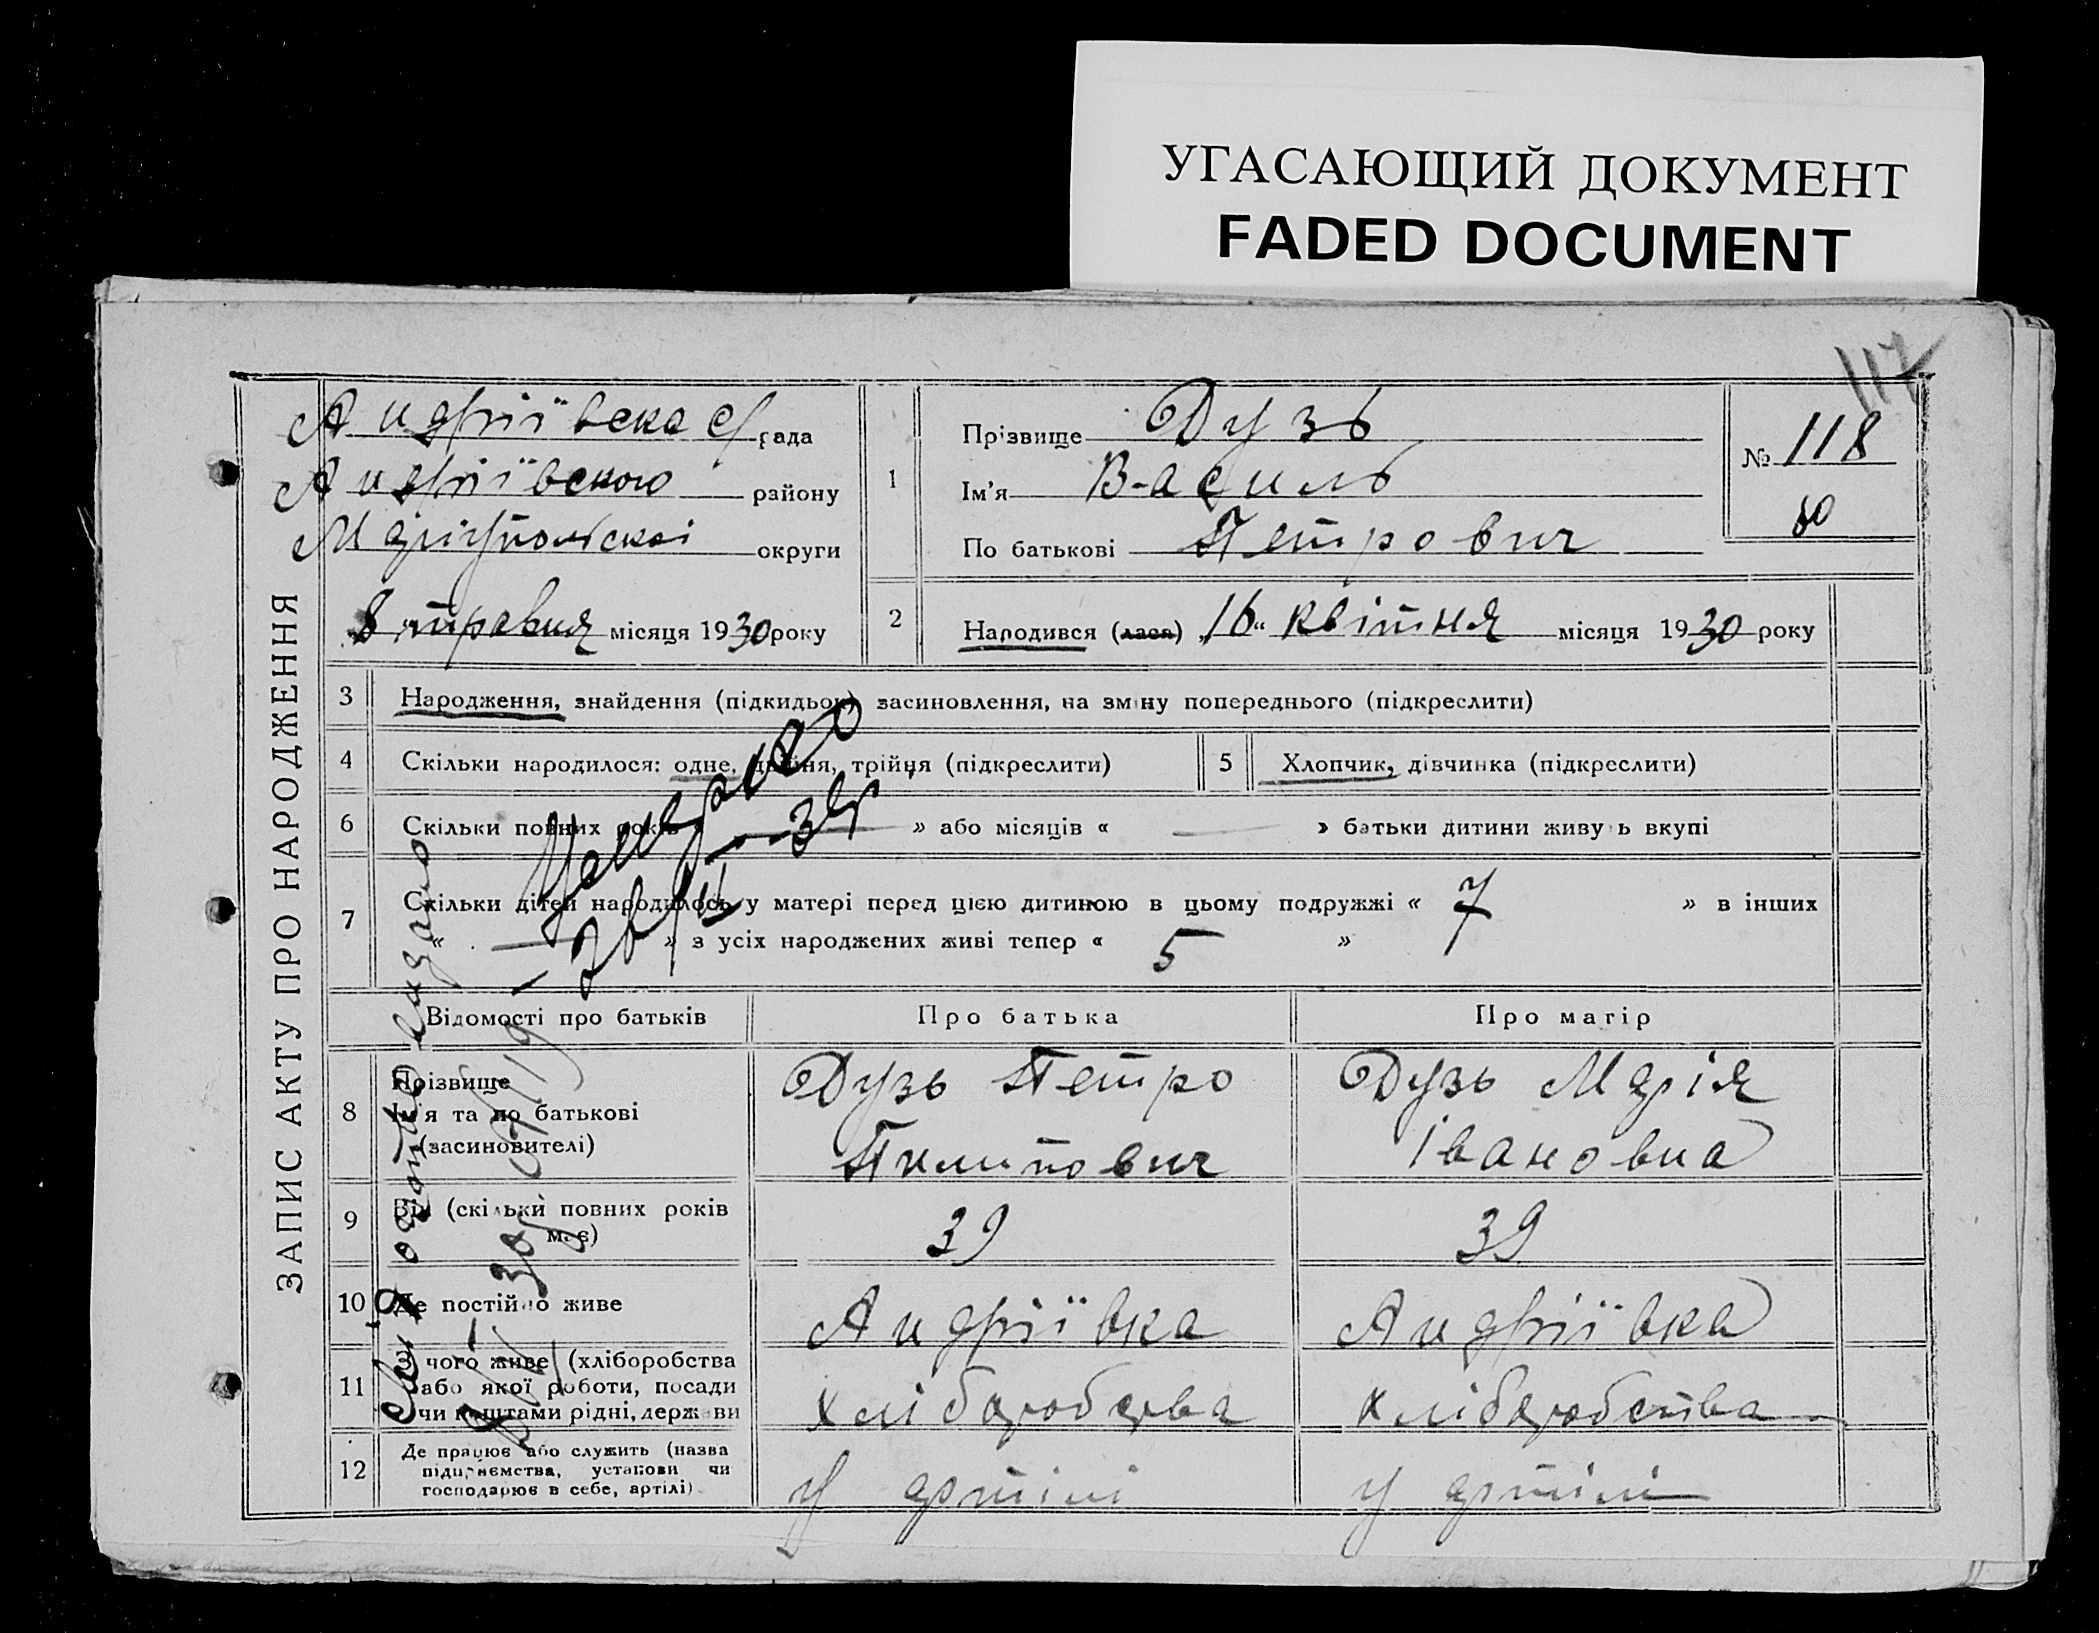 УГАСАЮЩИЙ ДОКУМЕНТ
FADED DOCUMENT
117
ЗАПИС АКТУ ПРО НАРОДЖЕННЯ
Андріївска с/рада
Андріївского району
Маріупольскої округи
8 травня місяця 1930 року
1
Прізвище Дузь
Ім'я Василь
По батькові Петрович
№ 118
80
2
Народився (лася) „16" квітня місяця 1930 року
3 Народження, знайдення (підкидьок) засиновлення, на зміну попереднього (підкреслити)
4 Скільки народилося: одне, двійня, трійня (підкреслити)
5 Хлопчик, дівчинка (підкреслити)
6 Скільки повних років « — » або місяців « — » батьки дитини живуть вкупі
7 Скільки дітей народилось у матері перед цією дитиною в цьому подружжі « 7 » в інших
« — » з усіх народжених живі тепер « 5 »
Відомості про батьків Про батька Про матір
8 Прізвище
Ім'я та по батькові
(засиновителі)
Дузь Петро
Пилипович
Дузь Марія
Івановна
9 Вік (скільки повних років
має)
39
39
10 Де постійно живе
Андріївка
Андріївка
11 З чого живе (хліборобства
або якої роботи, посади
чи коштами рідні, держави
хліборобства
хліборобства
12 Де працює або служить (назва
підприємства, установи чи
господарює в себе, артілі)
у артілі
у артілі